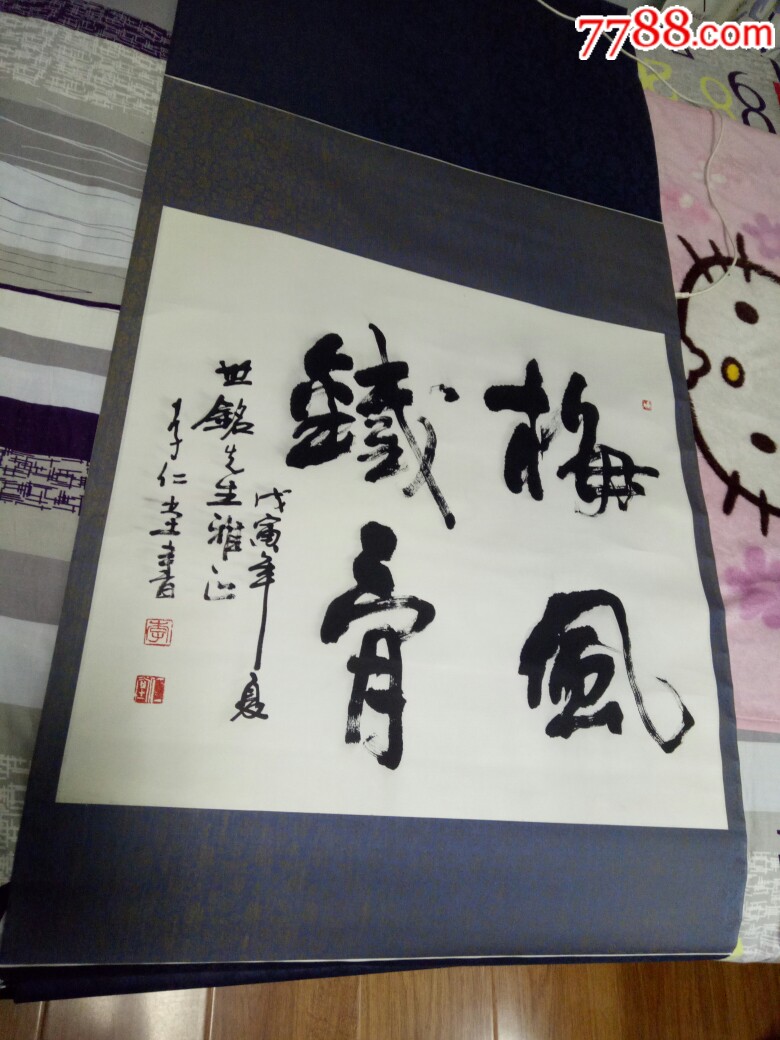 7788.com
梅風
鐵骨
戊寅年夏
世銘先生雅正
李仁堂書